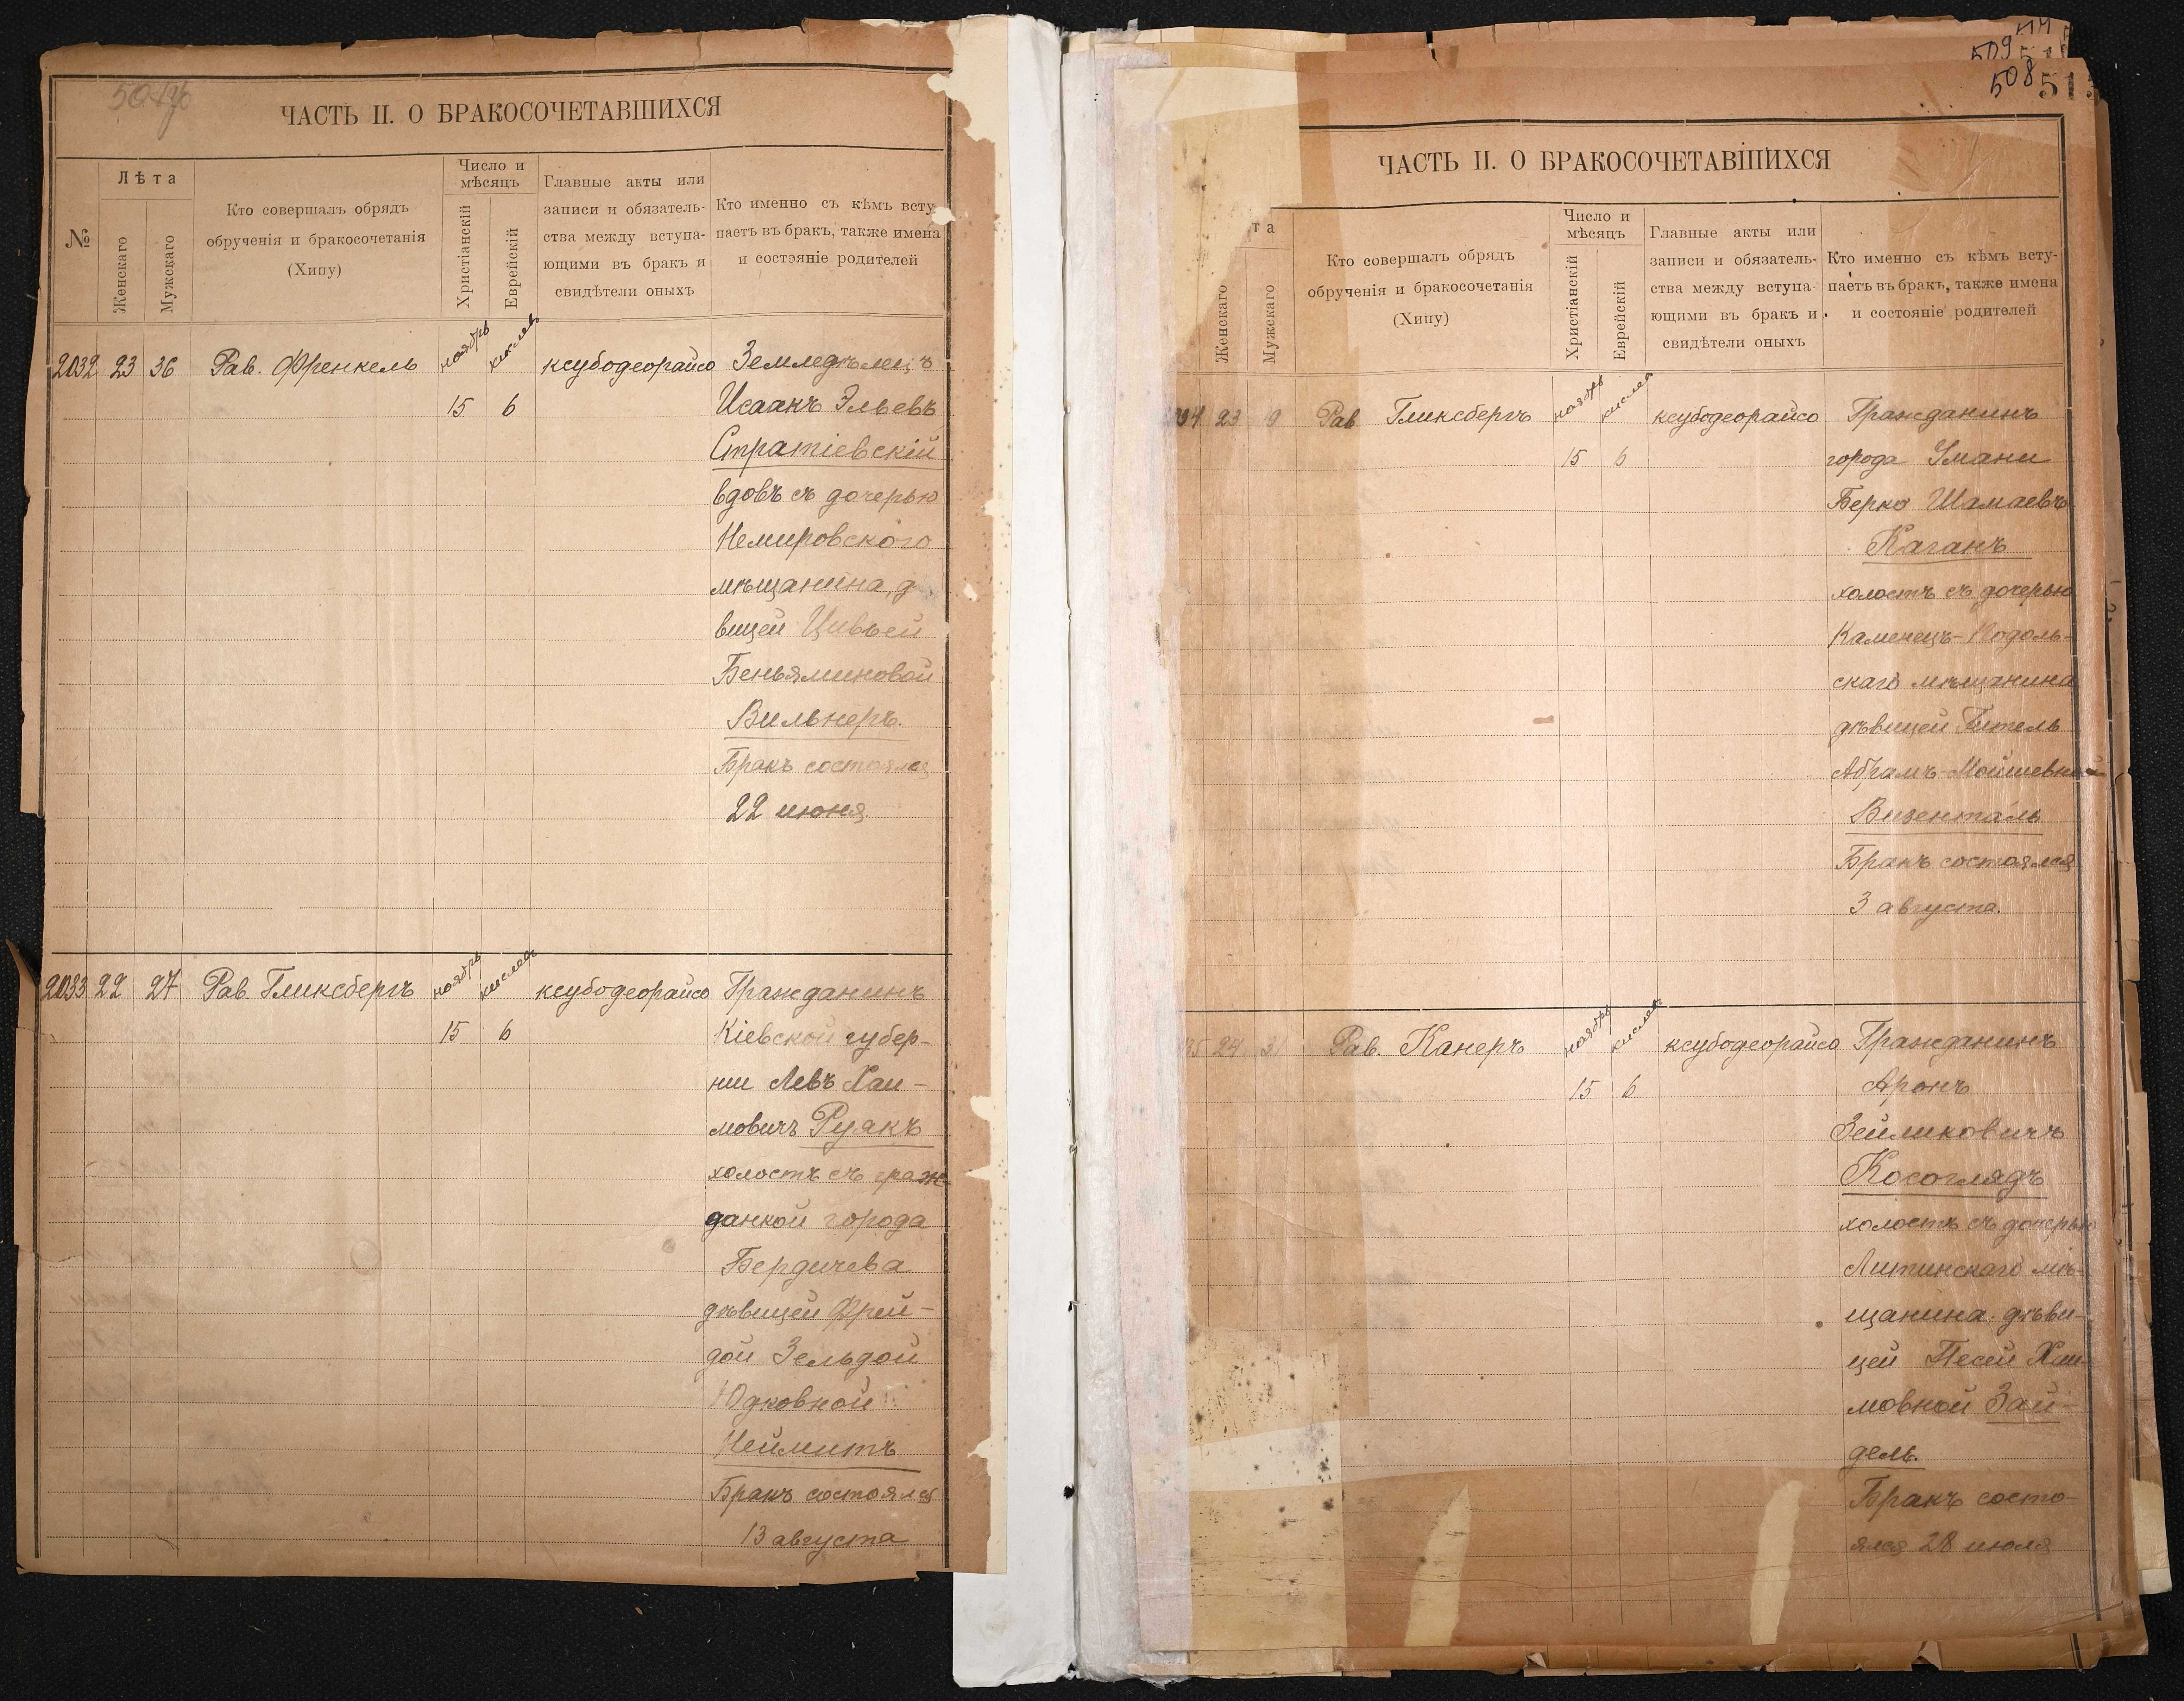 ЧАСТЬ II. О БРАКОСОЧЕТАВШИХСЯ
№
Лѣта
Женскаго
Мужскаго
Кто совершалъ обрядъ
обрученія и бракосочетанія
(Хипу)
Число и
мѣсяцъ
Христіанскій
Еврейскій
Главные акты или
записи и обязатель-
ства между вступа-
ющими въ бракъ и
свидѣтели оныхъ
Кто именно съ кѣмъ всту
паетъ въ бракъ, также имена
и состояніе родителей
2032 23 36 Рав. Френкель ноябрь кислевъ ксубодеорайсо Земледѣлецъ
15 6 Исаакъ Эльевъ
Стратіевскій
вдовъ съ дочерью
Немировского
мѣщанина, д
вицей Цивьей
Беньяминовой
Вильнеръ.
Бракъ состоялся
22 июня
2033 22 27 Рав. Гликсбергъ ноябрь кислевъ ксубодеорайсо Гражданинъ
15 6 Кіевской губер-
нии Левъ Хаи-
мовичъ Руякъ
холостъ съ граж-
данкой города
Бердичева
дѣвицей Фрей-
дой Зельдой
Юдковной
Неймитъ
Бракъ состоялся
13 августа
509
508
51
ЧАСТЬ II. О БРАКОСОЧЕТАВШИХСЯ
та
Женскаго
Мужскаго
Кто совершалъ обрядъ
обрученія и бракосочетанія
(Хипу)
Число и
мѣсяцъ
Христіанскій
Еврейскій
Главные акты или
записи и обязатель-
ства между вступа-
ющими въ бракъ и
свидѣтели оныхъ
Кто именно съ кѣмъ всту-
паетъ въ бракъ, также имена
и состояніе родителей
34 23 Рав Гликсбергъ ноябрь кислев ксубодеорайсо Гражданинъ
15 6 города Умани
Берко Шамаевъ
Каганъ
холостъ съ дочерью
Каменецъ-Подоль-
скаго мѣщанина
дѣвицей Гитель
Абрамъ-Мойшевной
Визенталь
Бракъ состоялся
3 августа.
35 24 31 Рав. Канеръ ноябрь кислев ксубодеорайсо Гражданинъ
15 6 Аронъ
Зейликовичъ
Косоглядъ
холостъ съ дочерью
Литинскаго мѣ-
щанина дѣви-
цей Песей Хаи-
мовной Зай-
дель.
Бракъ состо-
ялся 28 июля